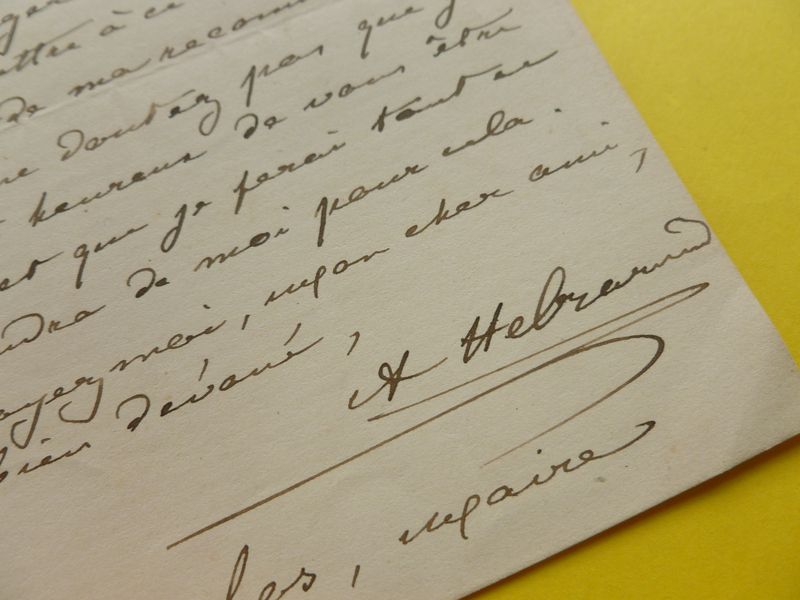 ttre à ce
de ma recom
ne doutez pas que j
heureux de vous être
et que je ferai tout ce
ndra de moi pour cela.
oyez moi, mon cher ami,
bien dévoué,
A Hébrard
les, maire